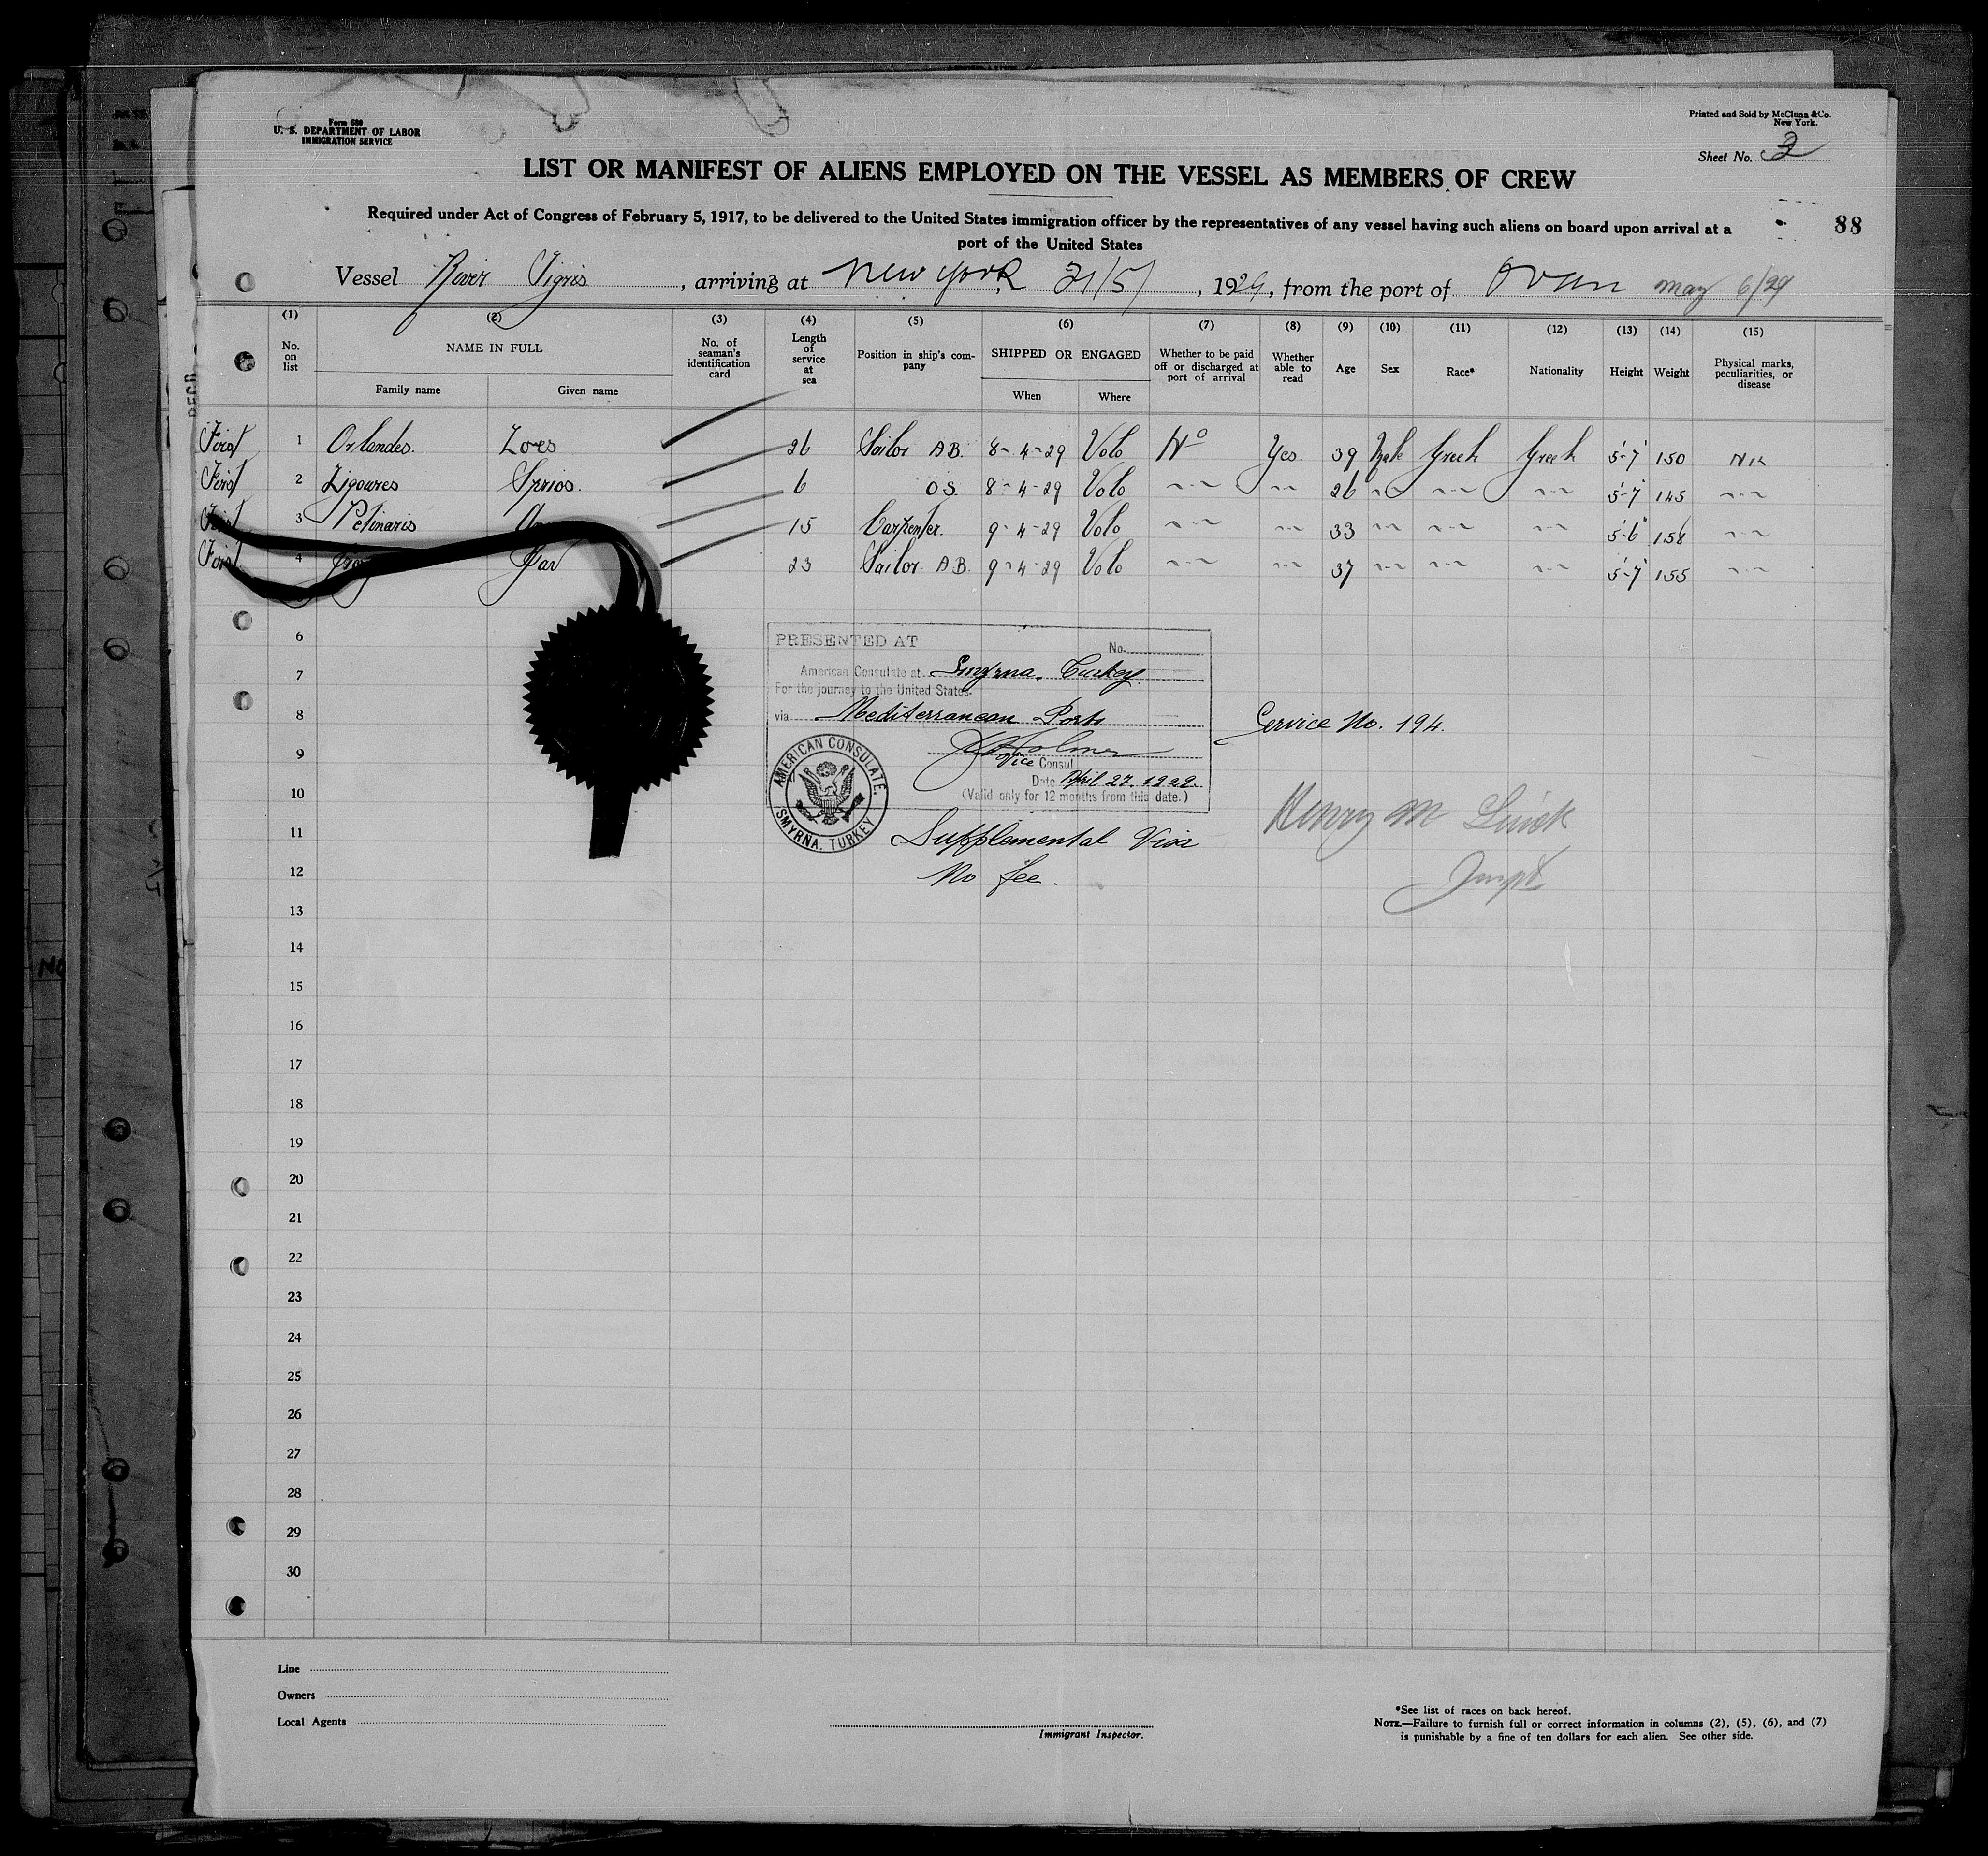 Form 680
U. S. DEPARTMENT OF LABOR
IMMIGRATION SERVICE
Printed and Sold by McClunn & Co.
New York.
Sheet No. 3
LIST OR MANIFEST OF ALIENS EMPLOYED ON THE VESSEL AS MEMBERS OF CREW
Required under Act of Congress of February 5, 1917, to be delivered to the United States immigration officer by the representatives of any vessel having such aliens on board upon arrival at a
port of the United States
88
Vessel River Tigris, arriving at New York 21/5/, 1929, from the port of Oran May 6/29
(1) (2) (3) (4) (5) (6) (7) (8) (9) (10) (11) (12) (13) (14) (15)
No. on list
NAME IN FULL
Family name Given name
No. of seaman's identification card
Length of service at sea
Position in ship's company
SHIPPED OR ENGAGED
When Where
Whether to be paid off or discharged at port of arrival
Whether able to read
Age
Sex
Race*
Nationality
Height
Weight
Physical marks, peculiarities, or disease
First 1 Orlandes. Zoes 26 Sailor A B. 8-4-29 Volo No Yes. 39 Male Greek Greek 5-7 150 Nil
First 2 Ligoures Sprios. 6 O S. 8-4-29 Volo 〃 〃 26 〃 〃 〃 5-7 145 〃
First 3 Pelinaris 15 Carpenter. 9-4-29 Volo 〃 〃 33 〃 〃 〃 5-6 158 〃
First 4 23 Sailor A B. 9-4-29 Volo 〃 〃 37 〃 〃 〃 5-7 155 〃
6
7
8
9
10
11
12
13
14
15
16
17
18
19
20
21
22
23
24
25
26
27
28
29
30
PRESENTED AT No.
American Consulate at Smyrna, Turkey.
For the journey to the United States.
via Mediterranean Ports
Vice Consul
Date April 27, 1929.
(Valid only for 12 months from this date.)
AMERICAN CONSULATE.
SMYRNA, TURKEY
Supplemental Visa
No fee.
Service No. 194.
Henry M
Line
Owners
Local Agents
Immigrant Inspector.
*See list of races on back hereof.
NOTE.—Failure to furnish full or correct information in columns (2), (5), (6), and (7)
is punishable by a fine of ten dollars for each alien. See other side.